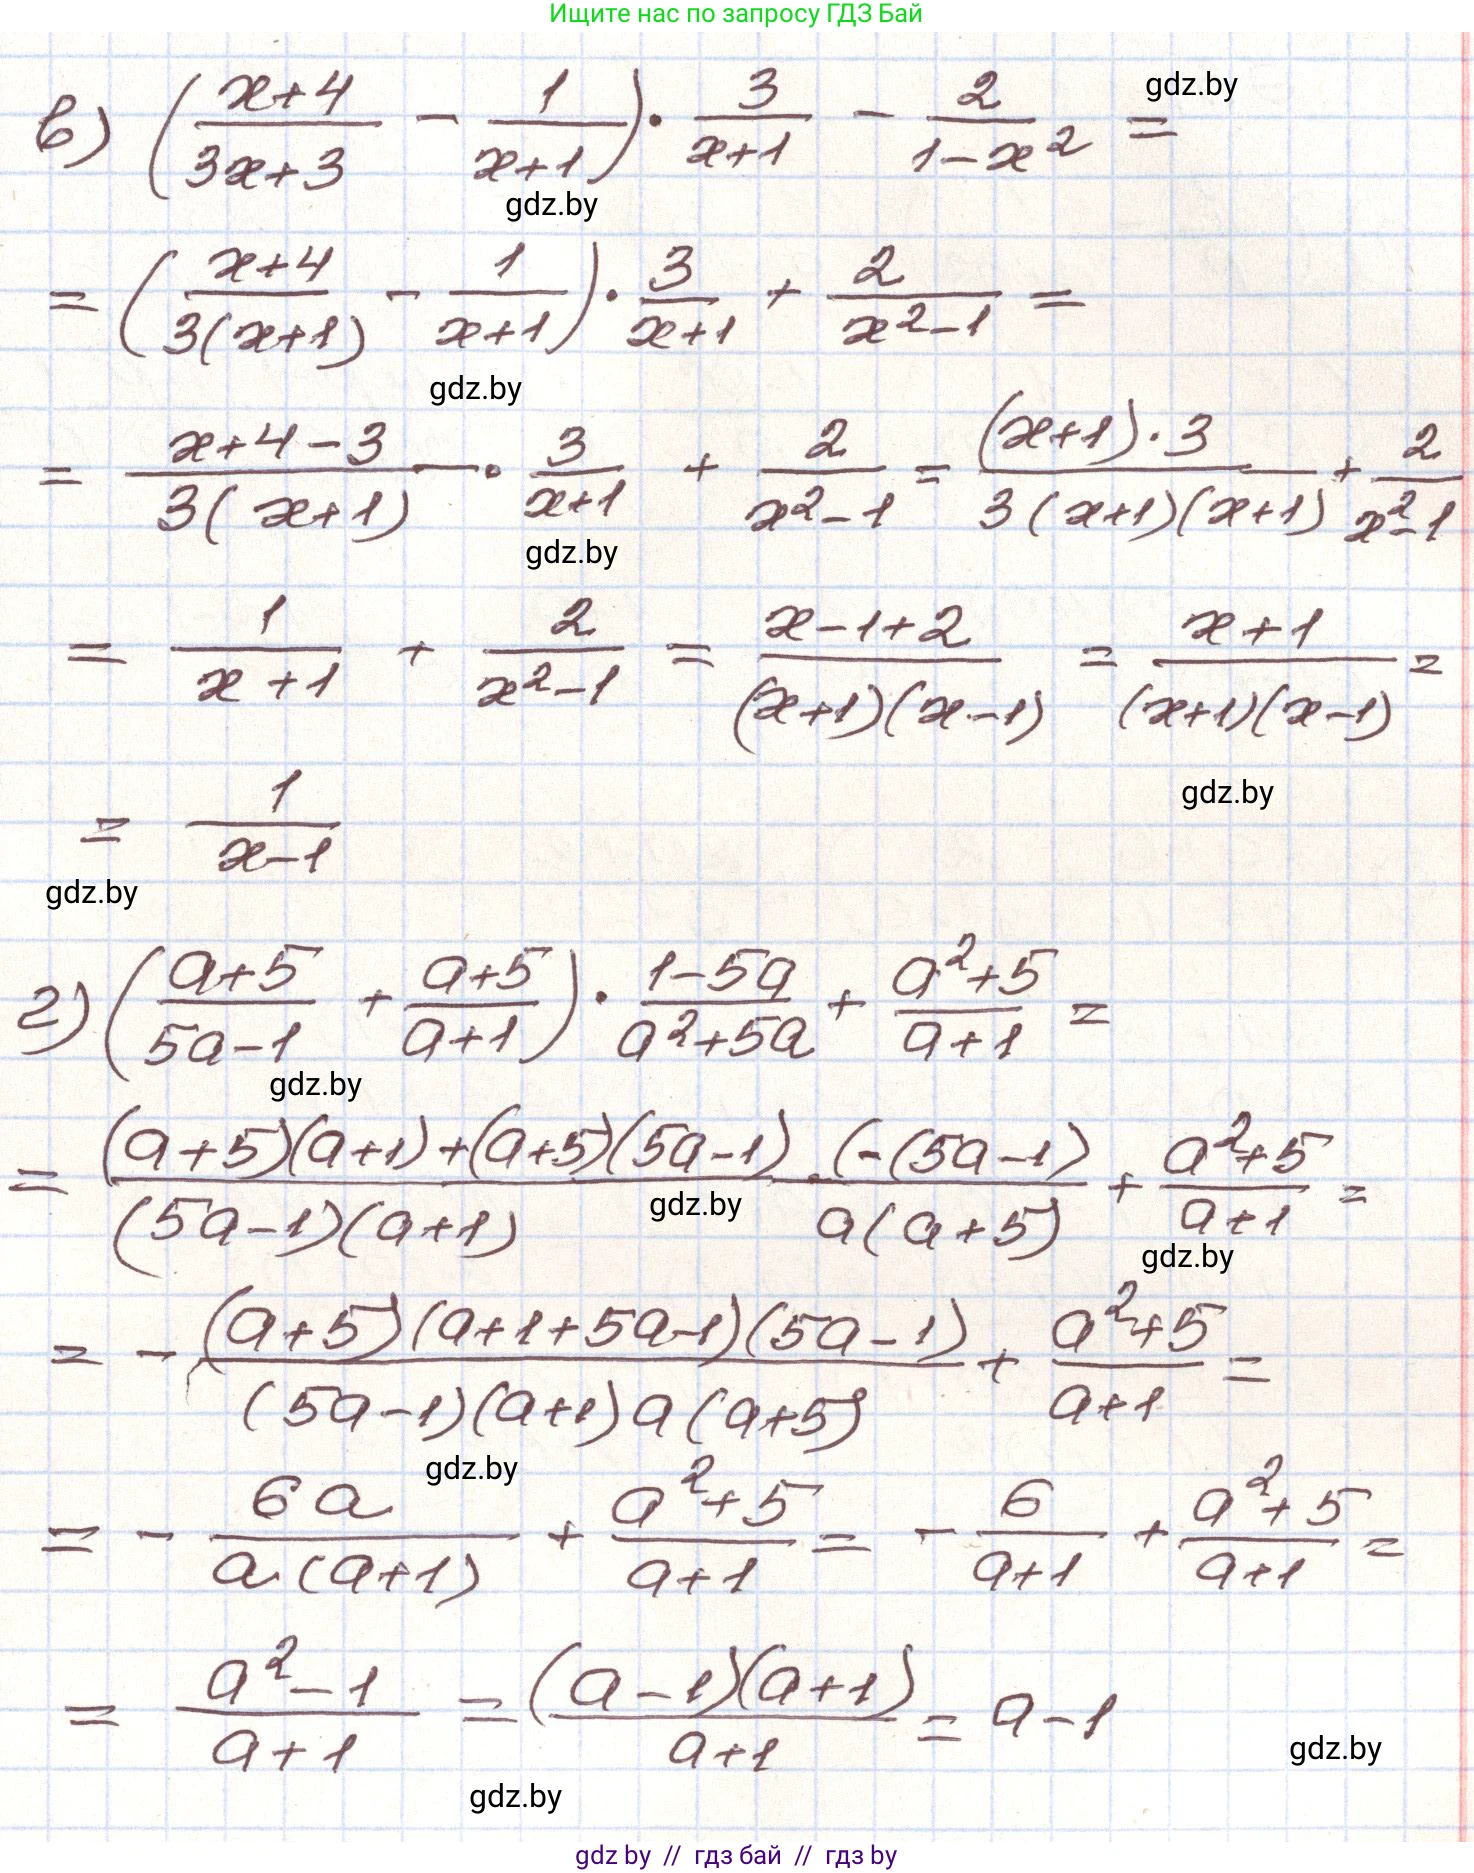 Ищите нас по запросу ГДЗ Бай
в) ((x+4)/(3x+3) - 1/(x+1)) · 3/(x+1) - 2/(1-x²) =
gdz.by
gdz.by
= ((x+4)/(3(x+1)) - 1/(x+1)) · 3/(x+1) + 2/(x²-1) =
gdz.by
= (x+4-3)/(3(x+1)) · 3/(x+1) + 2/(x²-1) = ((x+1)·3)/(3(x+1)(x+1)) + 2/(x²-1)
gdz.by
= 1/(x+1) + 2/(x²-1) = (x-1+2)/((x+1)(x-1)) = (x+1)/((x+1)(x-1)) =
gdz.by
= 1/(x-1)
gdz.by
г) ((a+5)/(5a-1) + (a+5)/(a+1)) · (1-5a)/(a²+5a) + (a²+5)/(a+1) =
gdz.by
= ((a+5)(a+1)+(a+5)(5a-1))/((5a-1)(a+1)) · (-(5a-1)/(a(a+5)) + (a²+5)/(a+1) =
gdz.by
gdz.by
= - ((a+5)(a+1+5a-1)(5a-1))/((5a-1)(a+1)a(a+5)) + (a²+5)/(a+1) =
gdz.by
= - 6a/(a(a+1)) + (a²+5)/(a+1) = - 6/(a+1) + (a²+5)/(a+1) =
= (a²-1)/(a+1) = ((a-1)(a+1))/(a+1) = a-1
gdz.by
gdz.by
gdz by // гдз бай // гдз by